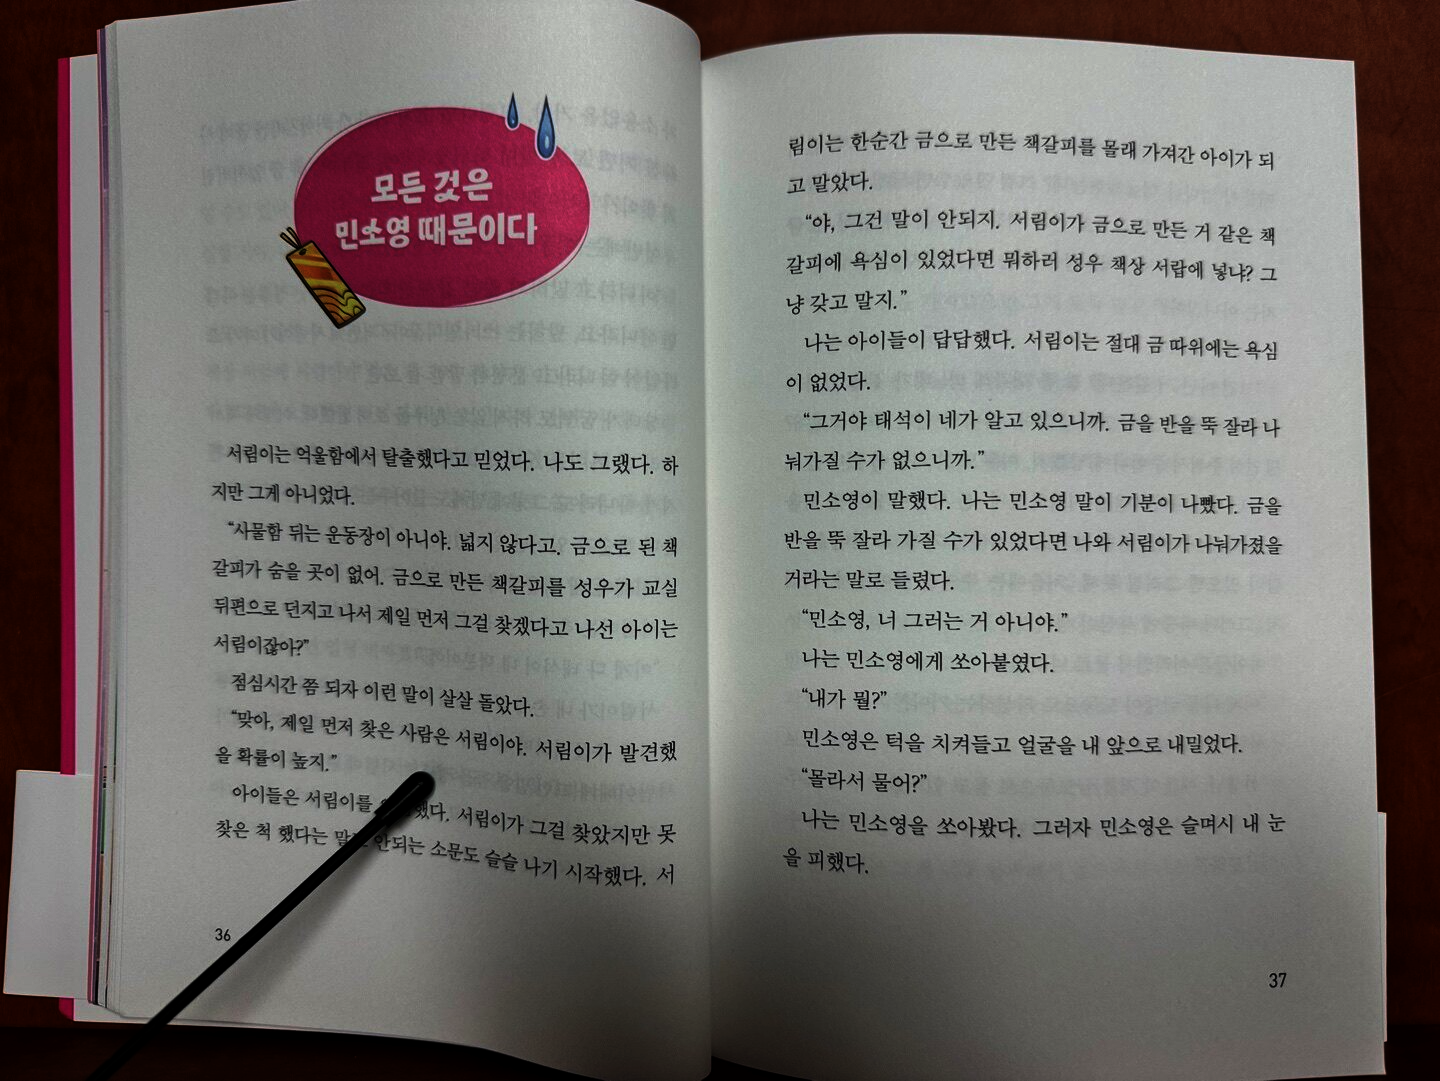 모든 것은
민소영 때문이다
서림이는 억울함에서 탈출했다고 믿었다. 나도 그랬다. 하
지만 그게 아니었다.
“사물함 뒤는 운동장이 아니야. 넓지 않다고. 금으로 된 책
갈피가 숨을 곳이 없어. 금으로 만든 책갈피를 성우가 교실
뒤편으로 던지고 나서 제일 먼저 그걸 찾겠다고 나선 아이는
서림이잖아?”
점심시간 쯤 되자 이런 말이 살살 돌았다.
“맞아, 제일 먼저 찾은 사람은 서림이야. 서림이가 발견했
을 확률이 높지.”
아이들은 서림이를 서림이가 그걸 찾았지만 못
찾은 척 했다는 안되는 소문도 슬슬 나기 시작했다. 서
36
림이는 한순간 금으로 만든 책갈피를 몰래 가져간 아이가 되
고 말았다.
“야, 그건 말이 안되지. 서림이가 금으로 만든 거 같은 책
갈피에 욕심이 있었다면 뭐하러 성우 책상 서랍에 넣냐? 그
냥 갖고 말지.”
나는 아이들이 답답했다. 서림이는 절대 금 따위에는 욕심
이 없었다.
“그거야 태석이 네가 알고 있으니까. 금을 반을 뚝 잘라 나
눠가질 수가 없으니까.”
민소영이 말했다. 나는 민소영 말이 기분이 나빴다. 금을
반을 뚝 잘라 가질 수가 있었다면 나와 서림이가 나눠가졌을
거라는 말로 들렸다.
“민소영, 너 그러는 거 아니야.”
나는 민소영에게 쏘아붙였다.
“내가 뭘?”
민소영은 턱을 치켜들고 얼굴을 내 앞으로 내밀었다.
“몰라서 물어?”
나는 민소영을 쏘아봤다. 그러자 민소영은 슬며시 내 눈
을 피했다.
37